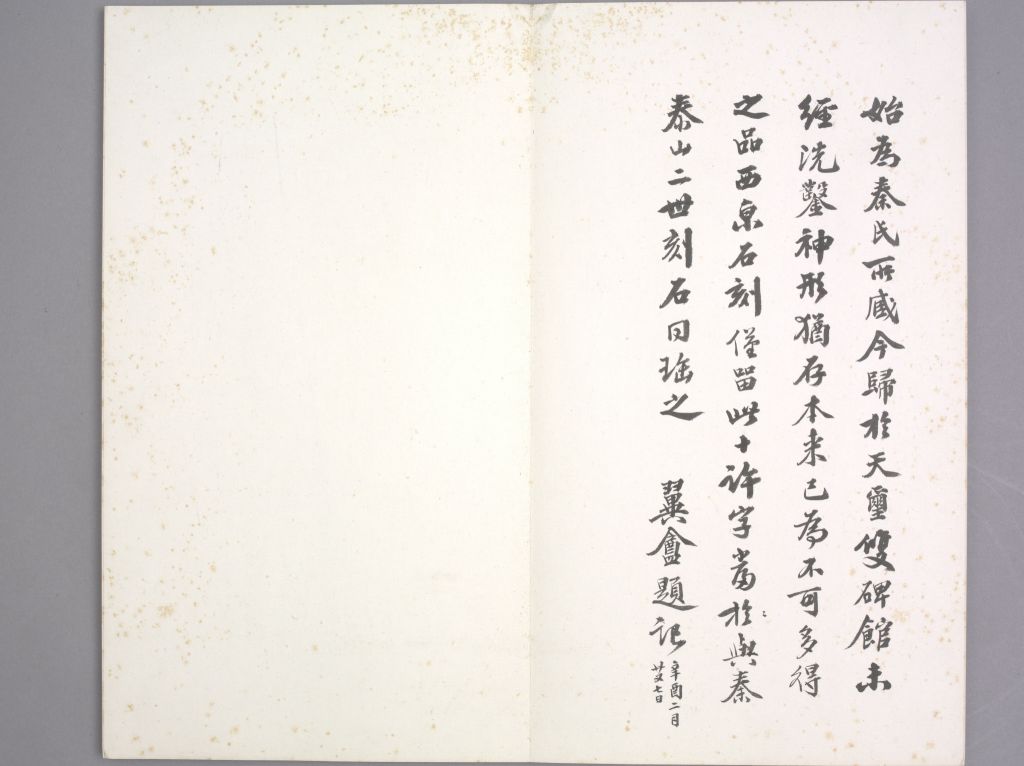 始為秦氏所臧今歸於天璽雙碑館未
經洗鑿神形猶存本來已為不可多得
之品西泉石刻僅留此十許字當於與秦
泰山二世刻石同珤之
翼盦題記
辛酉二月
廿又七日